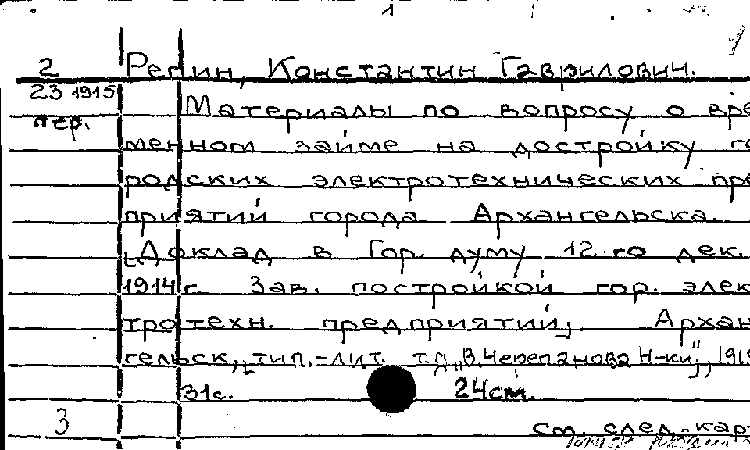 2 Репин, Константин Гаврилович.
23 1915 Материалы по вопросу о вре
пер. менном займе на достройку го
родских электротехнических пре
приятий города Архангельска.
[Доклад в Гор. думу 12-го дек.
1914 г. Зав. постройкой гор. элек
тротехн. предприятий]. Архан
гельск, тип.-лит. т.д. "В.Черепанова Н-ки", 191
31с. 24см.
3 см. след. кар